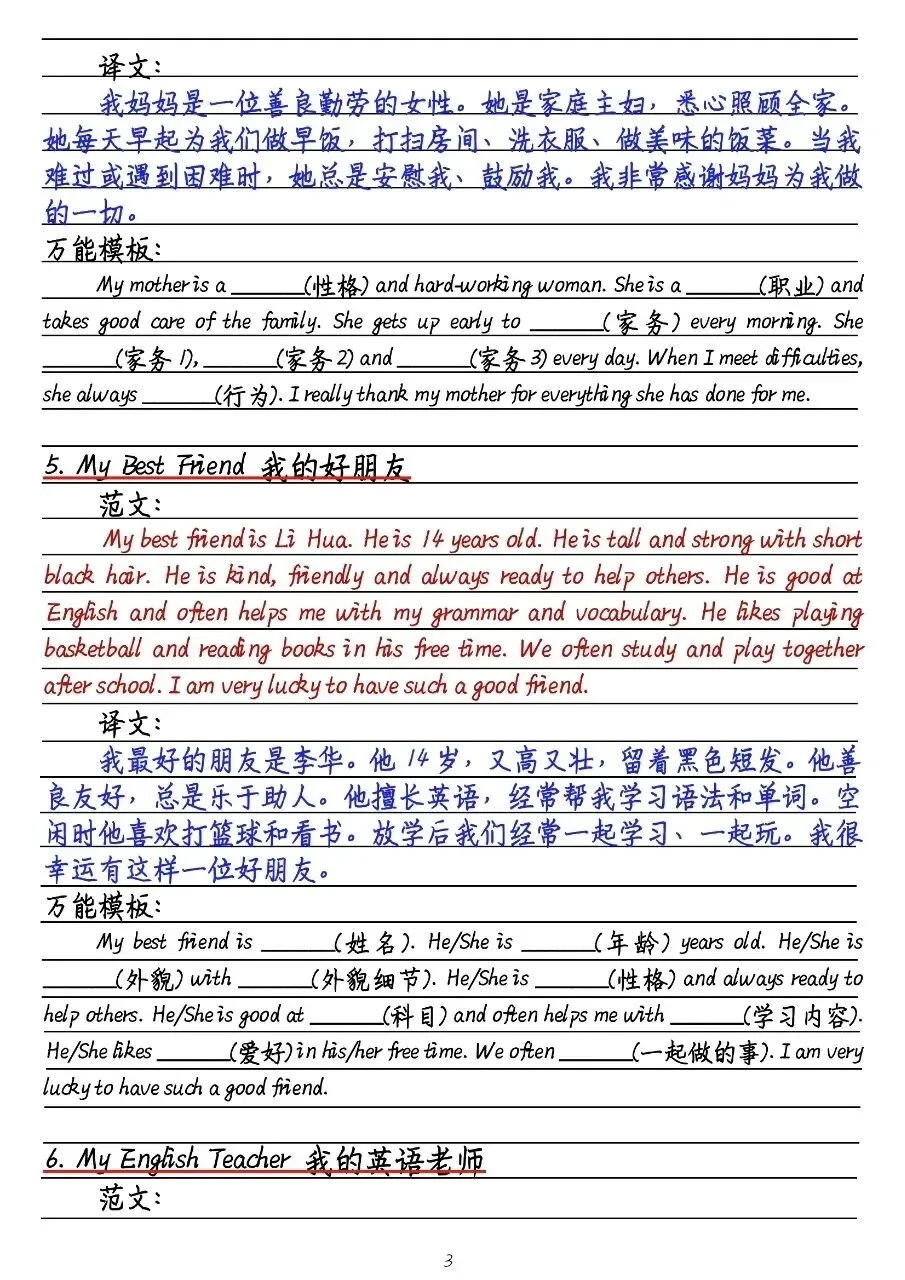 译文：
我妈妈是一位善良勤劳的女性。她是家庭主妇，悉心照顾全家。
她每天早起为我们做早饭，打扫房间、洗衣服、做美味的饭菜。当我
难过或遇到困难时，她总是安慰我、鼓励我。我非常感谢妈妈为我做
的一切。
万能模板：
My mother is a ______(性格) and hard-working woman. She is a ______(职业) and
takes good care of the family. She gets up early to ______(家务) every morning. She
______(家务1), ______(家务2) and ______(家务3) every day. When I meet difficulties,
she always ______(行为). I really thank my mother for everything she has done for me.
5. My Best Friend 我的好朋友
范文：
My best friend is Li Hua. He is 14 years old. He is tall and strong with short
black hair. He is kind, friendly and always ready to help others. He is good at
English and often helps me with my grammar and vocabulary. He likes playing
basketball and reading books in his free time. We often study and play together
after school. I am very lucky to have such a good friend.
译文：
我最好的朋友是李华。他14岁，又高又壮，留着黑色短发。他善
良友好，总是乐于助人。他擅长英语，经常帮我学习语法和单词。空
闲时他喜欢打篮球和看书。放学后我们经常一起学习、一起玩。我很
幸运有这样一位好朋友。
万能模板：
My best friend is ______(姓名). He/She is ______(年龄) years old. He/She is
______(外貌) with ______(外貌细节). He/She is ______(性格) and always ready to
help others. He/She is good at ______(科目) and often helps me with ______(学习内容).
He/She likes ______(爱好) in his/her free time. We often ______(一起做的事). I am very
lucky to have such a good friend.
6. My English Teacher 我的英语老师
范文：
3